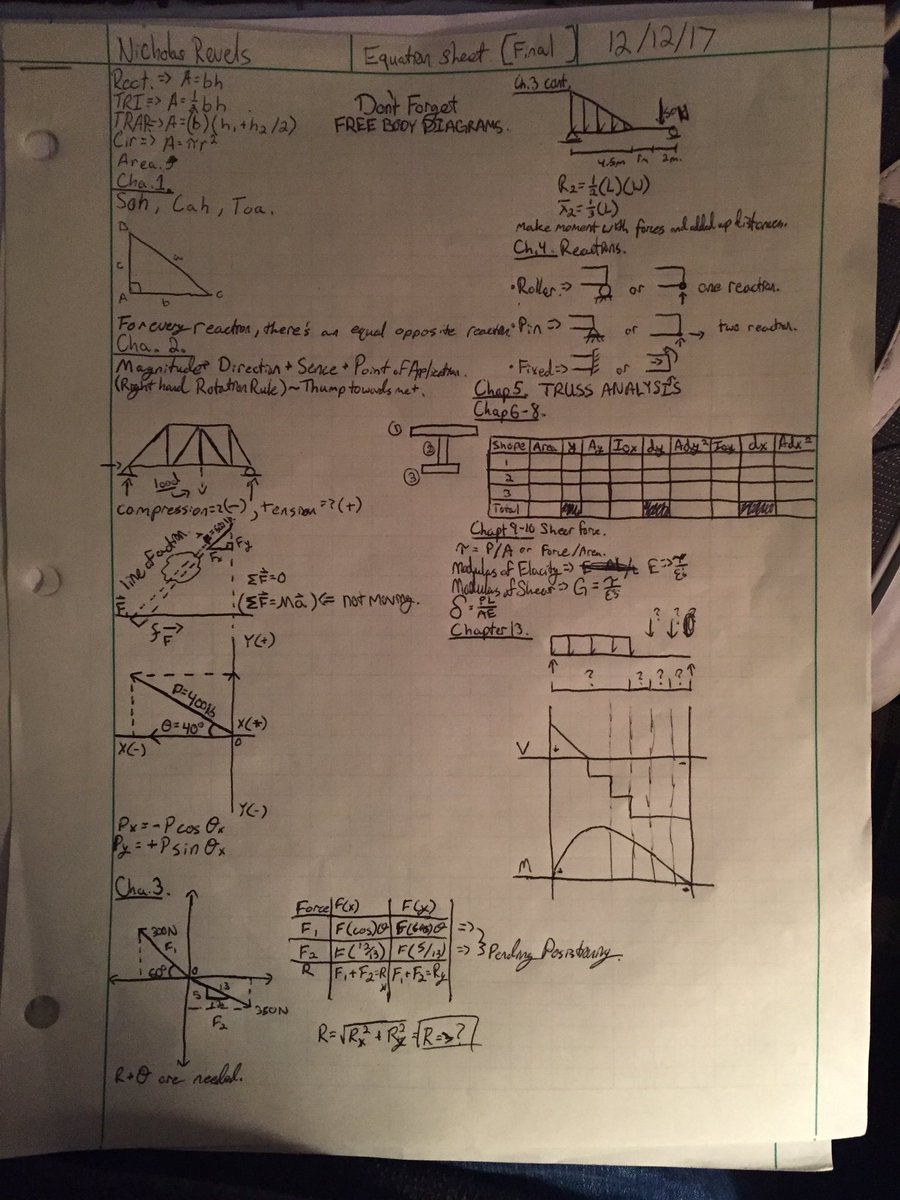 Nicholas Revels
Equation sheet [Final]
12/12/17
Rect. => A=bh
TRI => A=½bh
TRAP=> A=(b)(h₁+h₂/2)
Cir=> A=πr²
Area.
Don't Forget
FREE BODY DIAGRAMS.
Cha.1.
Soh, Cah, Toa.
B
c
a
A
b
C
For every reaction, there's an equal opposite reaction
Cha. 2.
Magnitude + Direction + Sence + Point of Application.
(Right hand Rotation Rule) ~ Thump towards me +.
load
compression=>(-), tension=>(+)
line of action.
Fx
Fy
ΣF=0
(ΣF=Ma) <= not moving.
F
Y(+)
P=400lb
θ=40°
X(+)
X(-)
0
Y(-)
Px = -P cos θx
Py = +P sin θx
Cha.3.
300N
F₁
60°
0
13
5
12
F₂
350N
R+θ are needed.
Force F(x) F(y)
F₁ F(cos)θ
F₂ F(12/13) F(5/13)
R F₁+F₂=Rx F₁+F₂=Ry
=>
=> } Pending Positivity.
R=√Rx²+Ry² = R=>?
Ch.3 cont.
50N
4.5m 1m 2m.
R₂=½(L)(W)
x̄₂=⅓(L)
make moment with forces and added up distances.
Ch.4. Reactions.
• Roller.=> or one reaction.
• Pin => or two reaction.
• Fixed=> or
Chap 5. TRUSS ANALYSIS
Chap 6-8.
① ② ③
Shape Area y Ay Iox dy Ady² Ioy dx Adx²
1
2
3
Total
Chapt 9-10 Sheer force.
τ = P/A or Force/Area.
Modulus of Elacity=> E=>
Modulus of Shear=> G = τ/
δ = PL/AE
Chapter 13.
? ? ?
? ? ? ?
V
+
-
M
+